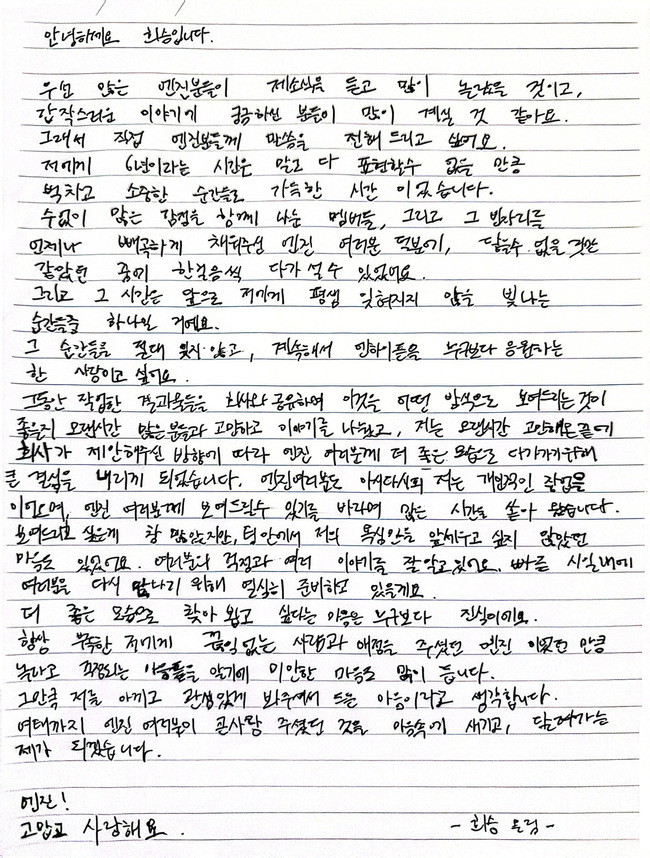 안녕하세요 희승입니다.
우선 많은 엔진분들이 제소식을 듣고 많이 놀랐을 것이고,
갑작스러운 이야기에 궁금하신 분들이 많이 계실 것 같아요.
그래서 직접 엔진분들께 말씀을 전해 드리고 싶어요.
저에게 6년이라는 시간은 말로 다 표현할수 없을 만큼
벅차고 소중한 순간들로 가득한 시간 이었습니다.
수없이 많은 감정을 함께 나눈 멤버들, 그리고 그 빈자리를
언제나 빼곡하게 채워주신 엔진 여러분 덕분에, 닿을수 없을 것만
같았던 꿈에 한걸음씩 다가 설 수 있었어요.
그리고 그 시간은 앞으로 저에게 평생 잊혀지지 않을 빛나는
순간들중 하나일 거예요.
그 순간들을 절대 잊지 않고, 계속해서 엔하이픈을 누구보다 응원하는
한 사람이고 싶어요.
그동안 작업한 결과물들을 회사와 공유하며 이것을 어떤 방식으로 보여드리는것이
좋을지 오랜시간 많은 분들과 고민하고 이야기를 나눴고, 저는 오랜시간 고민해온 끝에
회사가 제안해주신 방향에 따라 엔진 여러분께 더 좋은 모습으로 다가가기위해
큰 결심을 내리게 되었습니다. 엔진여러분도 아시다시피 저는 개인적인 작업을
이어오며, 엔진 여러분께 보여드릴수 있기를 바라며 많은 시간을 쏟아 왔습니다.
보여드리고 싶은게 참 많았지만, 팀 안에서 저의 욕심만을 앞세우고 싶지 않았던
마음도 있었어요. 여러분의 걱정과 여러 이야기를 잘 알고 있어요. 빠른 시일내에
여러분을 다시 만나기 위해 열심히 준비하고 있을게요.
더 좋은 모습으로 찾아 뵙고 싶다는 마음은 누구보다 진심이에요.
항상 부족한 저에게 끊임없는 사랑과 애정을 주셨던 엔진 이었던 만큼
놀라고 걱정되는 마음들을 알기에 미안한 마음도 많이 듭니다.
그만큼 저를 아끼고 관심있게 봐주셔서 드는 마음이라고 생각합니다.
여태까지 엔진 여러분이 큰사랑 주셨던 것을 마음속에 새기고, 달려가는
제가 되겠습니다.
엔진!
고맙고 사랑해요.
- 희승 드림 -